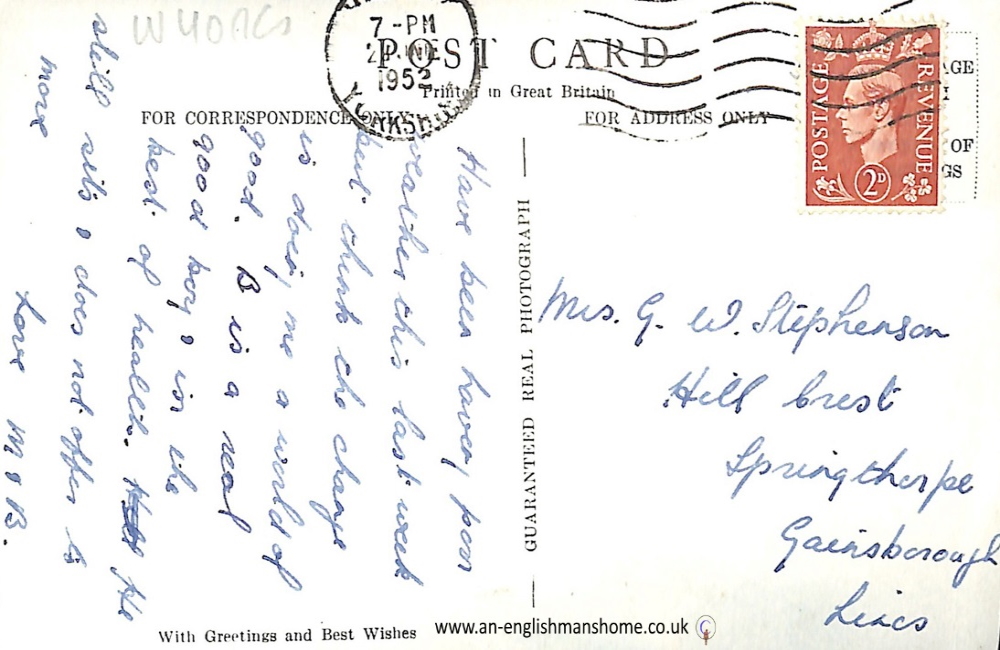 W YORKS
7-PM
1952
YORKSHIRE
POST CARD
Printed in Great Britain
FOR CORRESPONDENCE ONLY
FOR ADDRESS ONLY
POSTAGE
REVENUE
2D
AGE
OF
GS
Have been having poor
weather this last week
but think the change
is doing me a world of
good. B is a real
good boy, in the
best of health. He
still sits & does not offer to
more
Love M & B.
GUARANTEED REAL PHOTOGRAPH
Mrs. G. W. Stephenson
Hill Crest
Springthorpe
Gainsborough
Lincs
With Greetings and Best Wishes
www.an-englishmanshome.co.uk